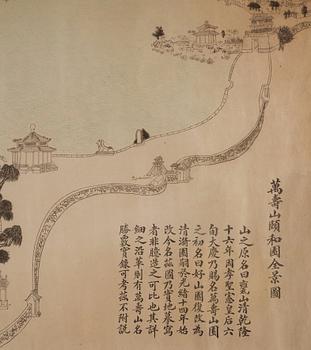 萬壽山頤和園全景圖
山之原名曰甕山清乾隆
十六年因孝聖憲皇后六
旬大慶乃賜名萬壽山園
之初名曰好山園復改為
清漪園嗣於光緒十四年始
改今名茲圖乃實地摹寫
者非臆造之可比也其詳
細之沿革則有萬壽山名
勝覈實錄可考茲不附說